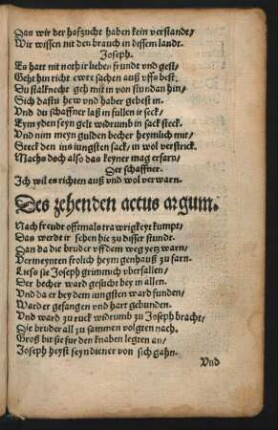 Das wir der hofzucht haben kein verstandt/
Wir wissen nit den brauch in dissem landt.
Joseph.
Es hatt nit noth ir lieben frundt vnd gest/
Geht hin richt ewre sachen auß vffs best.
Du stalknecht geh mit in von stundan hin/
Sich das tu hew vnd haber gebest in.
Vnd du schaffner laß in fullen ir seck/
Eym yden seyn gelt widrumb in sack steck.
Vnd nim meyn gulden becher heymlich mit/
Steck den ins iungsten sack/ in wol verstrick.
Machs doch also das keyner mag erfarn/
Der schaffner.
Ich wil es richten auß vnd wol verwarn.
Des zehenden actus argum.
Nach freudt offtmals trawrigkeyt kumpt/
Das werdt ir sehen hie zu disser stundt.
Dan da die bruder vff dem weg yetz warn/
Vermeynten frolich heym genhauß zu farn.
Ließ sie Joseph grimmich vberfallen/
Der becher ward gesucht bey in allen.
Vnd da er bey dem iungsten ward funden/
Ward er gefangen vnd hart gebunden.
Vnd ward zu ruck widrumb zu Joseph bracht/
Die bruder all zu sammen volgten nach.
Groß bit sie fur den knaben legten an/
Joseph heyst seyn diener von sich gahn.
Vnd